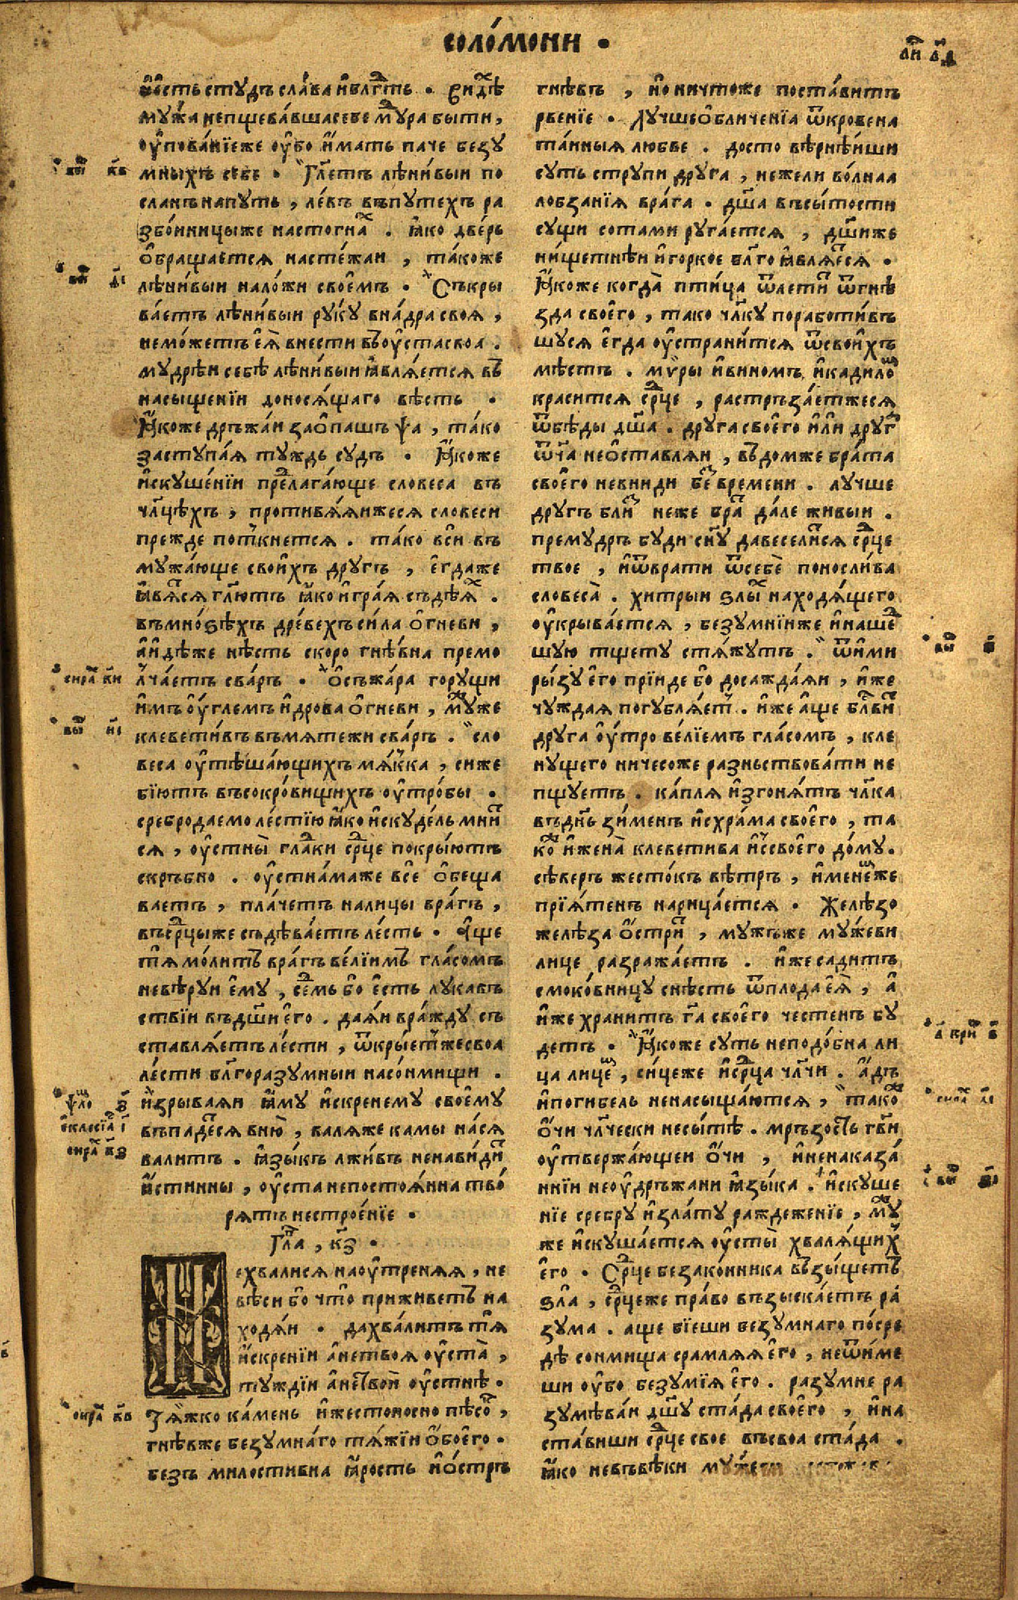 соло́мони ·
ность стꙋдъ сла́ва и҆ блгⷣть · Ви́дѣхъ
мꙋ́жа непщева́вша себе мⷣра быти,
оу҆пова́нїе же оу҆бо и҆мать паче безꙋ
мныхъ себе · Гл҃етъ лѣни́выи по
сланъ на пꙋть, ле́въ въ пꙋтехъ ра
збо́иницы же на стогна́хъ · ꙗ҆ко две́рь
ѻ҆браща́ется на сте́жаи, та́коже
лѣни́выи на ло́жи свое҆мъ · Съкры
ва́етъ лѣни́выи рꙋ́кꙋ в на́дра своя,
не мо́жетъ е҆ѧ̀ внести въ оу҆ста своа ·
мꙋдрѣи себѣ лѣни́выи ꙗ҆вля́ется въ
насыщенїи донося́щаго вѣсть ·
Ꙗ҆коже дръжа́и за ѻ҆пашъ ѱа, та́ко
застꙋпа́я тꙋждь сꙋдъ · Ꙗ҆коже
и҆скꙋше́нїи предлага́юще словеса въ
чл҃цѣхъ, противля́яиже ся словеси
прежде поткнется · та́ко вси въ
мꙋжа́юще свои҆хъ дрꙋгъ, е҆гда же
ꙗ҆вятся гл҃ютъ ꙗ҆ко и҆гра́я съдѣяхъ ·
въ мно́ѕѣхъ дре́вехъ си́ла ѻ҆гневи,
а҆ идѣже нѣсть скоро гнѣ́вна премо
лча́етъ сва́ръ · Ѻ҆съжа́ра горꙋщи
имъ оу҆́глемъ и҆ дрова ѻ҆гневи, мꙋ́же
клевети́въ въ мятежи сва́ръ · сло
веса оу҆тѣша́ющихъ мя́кка, си же
бїютъ въ сокро́вищихъ оу҆тро́бы ·
сребро даемо ле́стїю ꙗ҆ко и҆скꙋде́ль мнит
ся, оу҆стны̀ гла́дки срⷣце покры́ютъ
скръбно · оу҆стнама же все ѻ҆беща
ваетъ, пла́четъ на лицы вра́гъ,
въ срⷣцы же съдѣва́етъ ле́сть · А҆ще
тя мо́литъ вра́гъ ве́лїимъ гла́сомъ
не вѣ́рꙋи е҆мꙋ, се́дмь бо е҆сть лꙋкавъ
ствїи въ дш҃и е҆го · дая́и вра́ждꙋ съ
ставля́етъ ле́сти, ѿкры́етъ же своа
ле́сти бл҃горазꙋмныи на со́имищи ·
и҆зрываяи ꙗ҆мꙋ и҆скренемꙋ свое҆мꙋ
въпаде́ся в ню̀, валя́же камы на ся
валитъ · ꙗ҆зы́къ лжи́въ ненави́дит
и҆стинны, оу҆ста непостоя́нна тво́
рятъ нестрое́нїе ·
Гла҃, к҃з ·
Не хвалися на оу҆треняя, не
вѣ́си бо что̀ приживетъ на
ходя́и · да хва́литъ тя
и҆скренїи а҆ не твоя оу҆ста̀,
тꙋждїи а҆ не твои оу҆стнѣ ·
Тя́жко ка́мень и҆ жестоносно пѣсо́къ,
гнѣ́въ же безꙋмна́го тя́жїи ѻ҆бое́го ·
безъ милостивна ꙗ҆рость и҆ ѻ҆стръ
гнѣ́въ, но ничтоже поста́витъ
рвенїе · Лꙋчше ѻ҆бличенїа ѿкровена
та́нныя любве · досто вѣрнѣ́иши
сꙋть стрꙋпи дрꙋга, нежели во́лнаа
лобза́нїя вра́га · дш҃а въ сы́тости
сꙋщи сотами рꙋга́ется, дш҃и же
нищетнѣи и҆ горкое бл҃го ꙗ҆вля́еся ·
Ꙗ҆коже когда̀ пти́ца ѿлети́т ѿ гнѣ
зда свое҆го, тако чл҃кꙋ поработи́въ
шꙋся е҆гда оу҆страни́тся ѿ свои́хъ
мѣстъ · мѵ́ры и҆ виномъ и҆ кадилом
красится срⷣце, растръза́етжеся
ѿ бѣды дш҃а · дрꙋга свое҆го и҆ли дрꙋга
ѿча не ѻ҆ставля́и, въ дом же бра́та
свое҆го не вниди без времени · лꙋчше
дрꙋгъ близ неже брат да́ле живыи ·
премꙋдръ бꙋди сы́нꙋ да веселится срⷣце
твое, и҆ ѿврати ѿ себѐ поносли́ва
словеса̀ · хитрыи ѕлых находя́щего
оу҆крыва́ется, безꙋмнїи же и҆ нашед
шꙋю тщетꙋ стя́жꙋтъ · Ѿи́ми
ры́зꙋ е҆го прїиде бо досажда́яи, и҆же
чꙋждая погꙋбля́ет · и҆же а҆ще блⷭ҇вит
дрꙋга оу҆тро ве́лїемъ гла́сомъ, кле
нꙋщего ничесоже разньствова́ти не
пщꙋетъ · ка́пля и҆згоня́тъ чл҃ка
въ днь зи́менъ и҆с хра́ма свое҆го, та
ко и҆ жена̀ клеветива и҆с свое҆го до́мꙋ ·
сѣверъ жесто́къ вѣтръ, и҆менем же
прїя́тенъ нарица́ется · Желѣ́зо
желѣ́за ѻ҆стри́т, мꙋжъ же мꙋ́жеви
лице разража́етъ · и҆же садитъ
смоко́вницꙋ снѣсть ѿ плода е҆ѧ̀, а҆
и҆же хранитъ гⷭ҇а свое҆го честенъ бꙋ
детъ · Ꙗ҆коже сꙋть неподо́бна ли
ца лицем, си́це же и҆ срⷣца чл҃чи · а҆дъ
и҆ погибель не насыща́ются, такоже
ѻ҆́чи чл҃чески несы́тѣ · мръзость гв҃и
оу҆твержа́ющеи ѻ҆́чи, и҆ ненаказа́
ннїи неоу҆дръжани ꙗ҆зы́ка · и҆скꙋше
нїе сребрꙋ и҆ зла́тꙋ раждеженїе, мꙋ
же и҆скꙋша́ется оу҆сты̀ хваля́щих
е҆го · Срⷣце безако́нника възы́щетъ
ѕла̀, срⷣце же пра́во възыска́етъ ра́
зꙋма · аще бїеши безꙋмнаго по́сре
дѣ соимища срамля́я е҆го, не ѿиме
ши оу҆бо безꙋ́мїя е҆го · разꙋмне ра
зꙋмѣва́и дш҃ꙋ ста́да свое҆го, и҆ на
ста́виши срⷣце свое въ своа ста́да ·
ꙗ҆ко не въ вѣки мꙋ́жеви